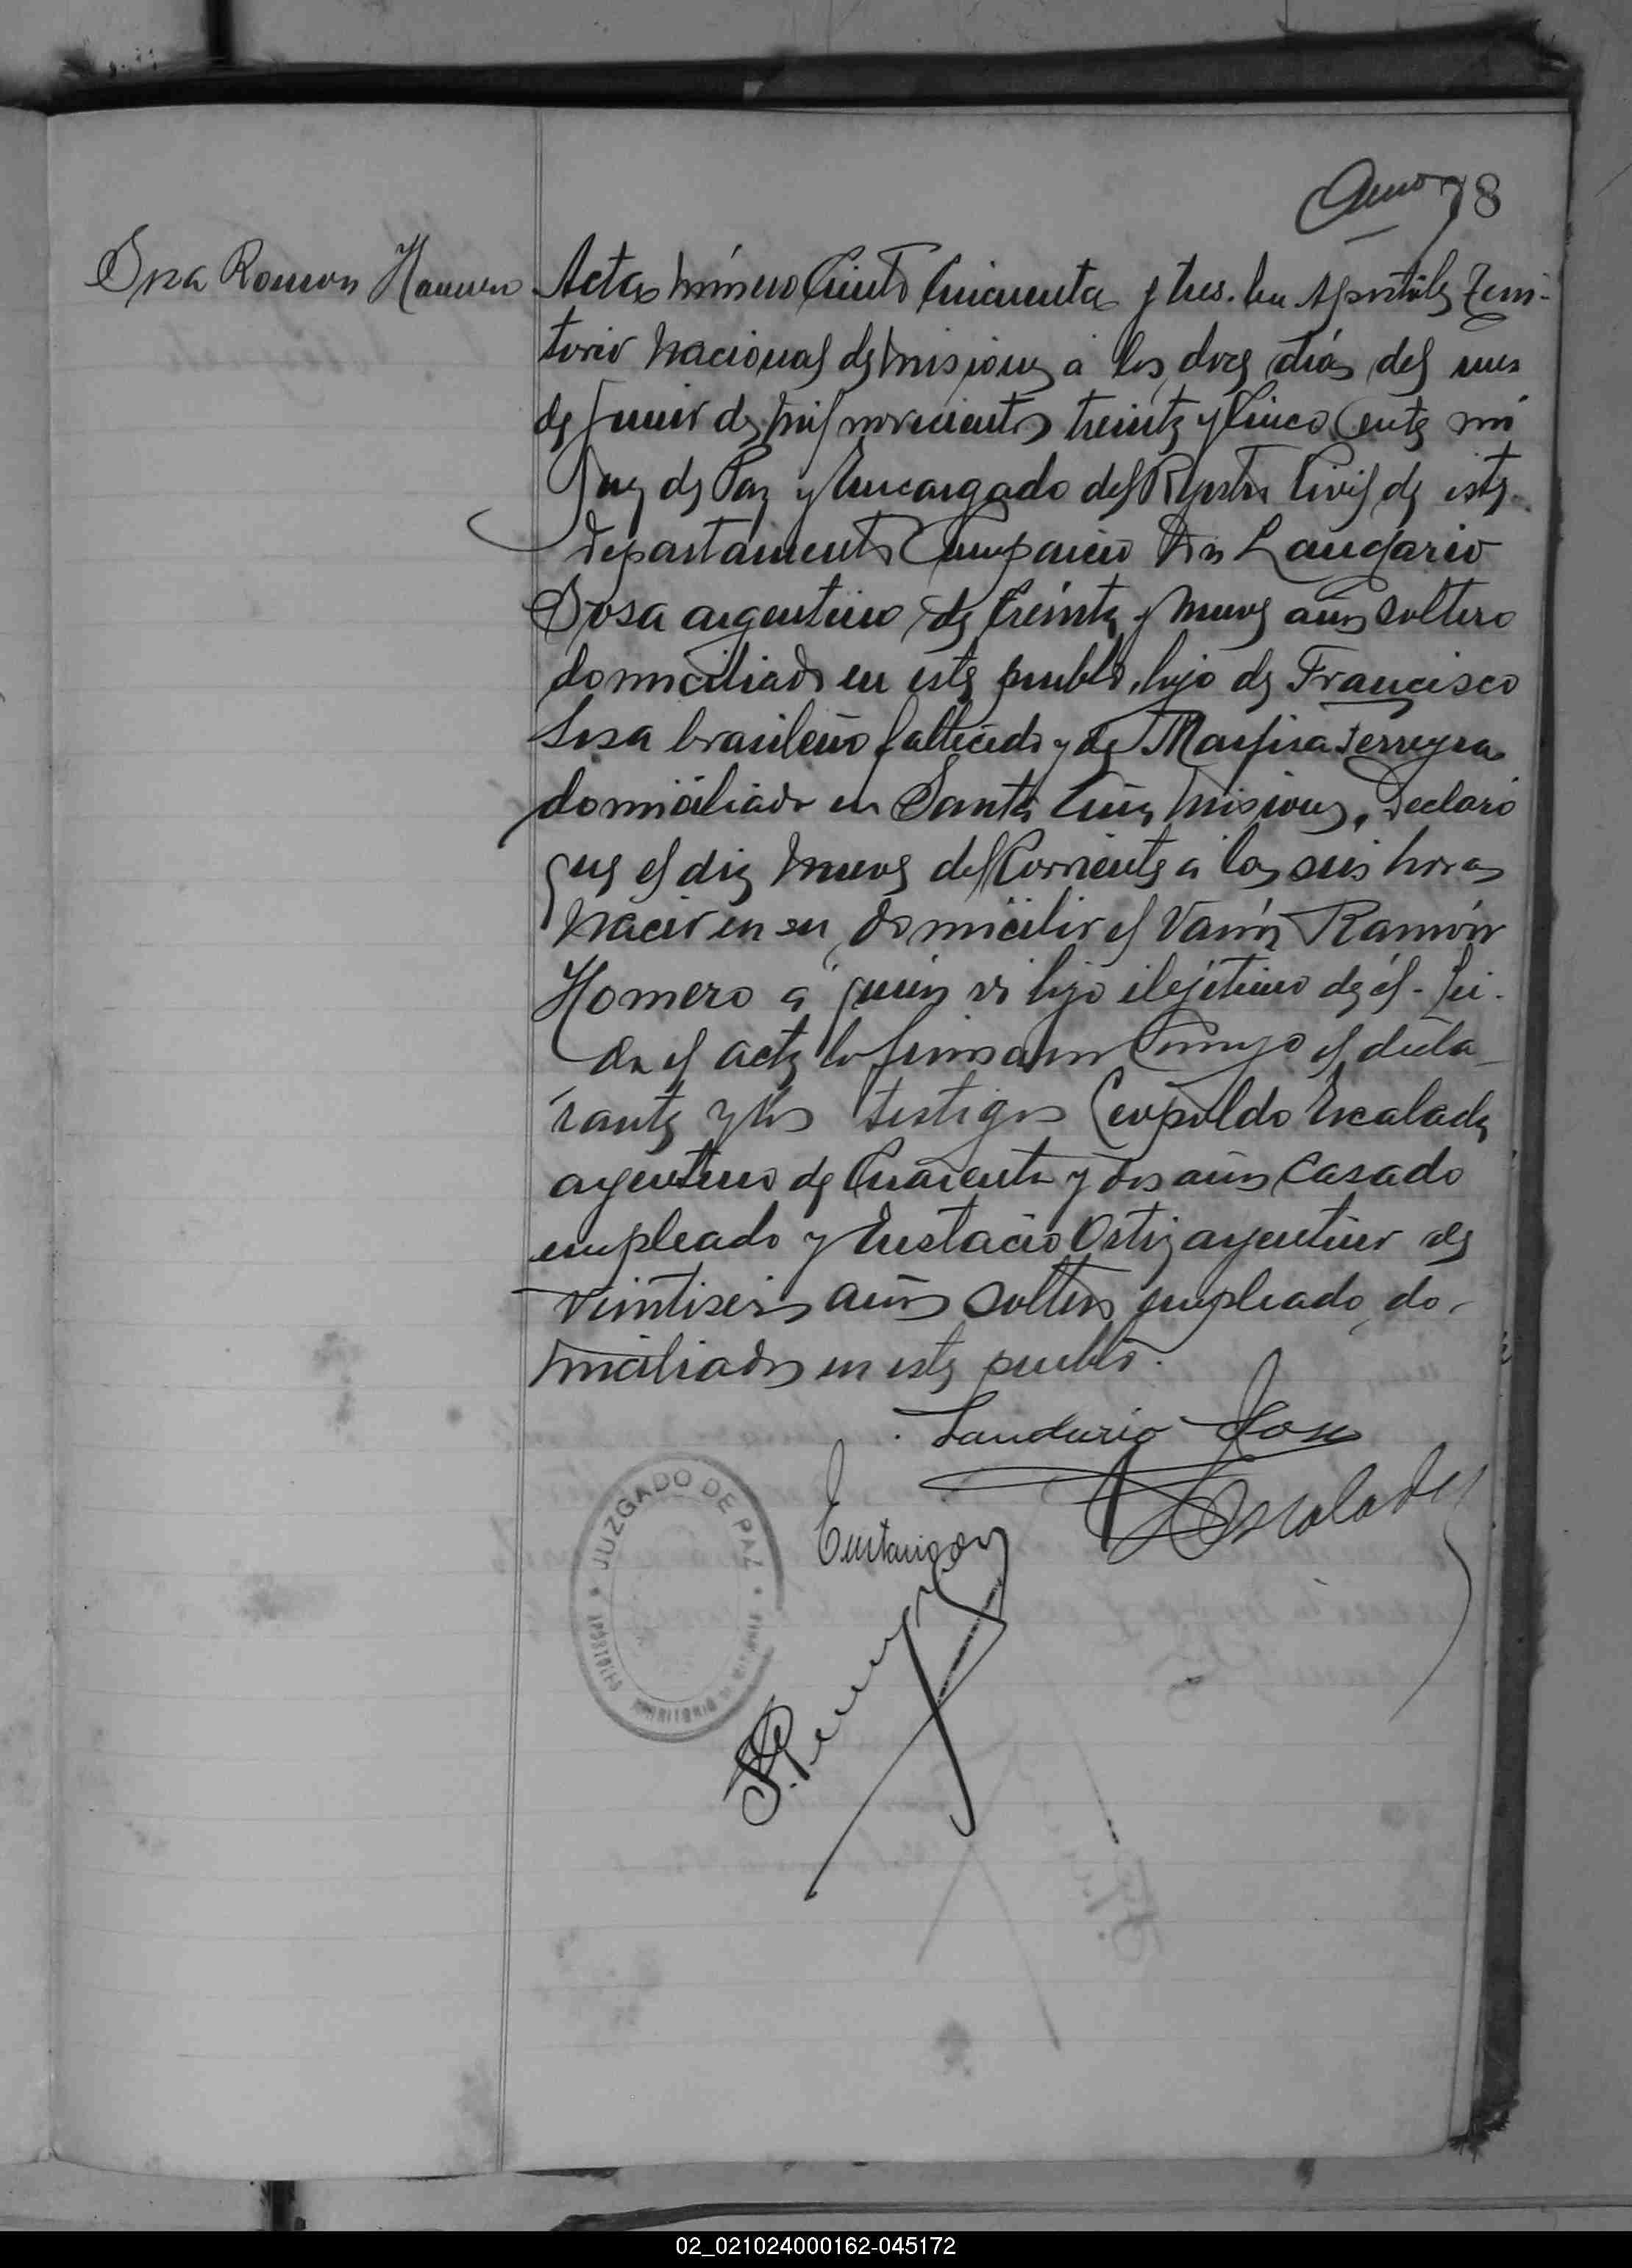 78
Sosa Ramon Homero
Acta número Ciento Cincuenta y tres. En Apóstoles Terri-
torio Nacional de Misiones a los doce días del mes
de Junio de mil novecientos treinta y Cinco ante mi
Juez de Paz y Encargado del Registro Civil de este
departamento Compareció Don Laudario
Sosa argentino de treinta y nueve años soltero
domiciliado en este pueblo, hijo de Francisco
Sosa brasileño fallecido y de Ferreyra
domiciliado en Santa Misiones, Declaró
que el día nueve del Corriente a las seis horas
nació en su domicilio el Varón Ramón
Homero a quien vi hijo ilejítimo de él. Lei-
da el acta la firmaron Conmigo el decla-
rante y los testigos Leopoldo Escalada
argentino de Cuarenta y dos años Casado
empleado y Eustacio Ortiz argentino de
veintiseis años soltero empleado, do-
miciliados en este pueblo.
Laudario Sosa
Escalada
JUZGADO DE PAZ
APOSTOLES
02_021024000162-045172